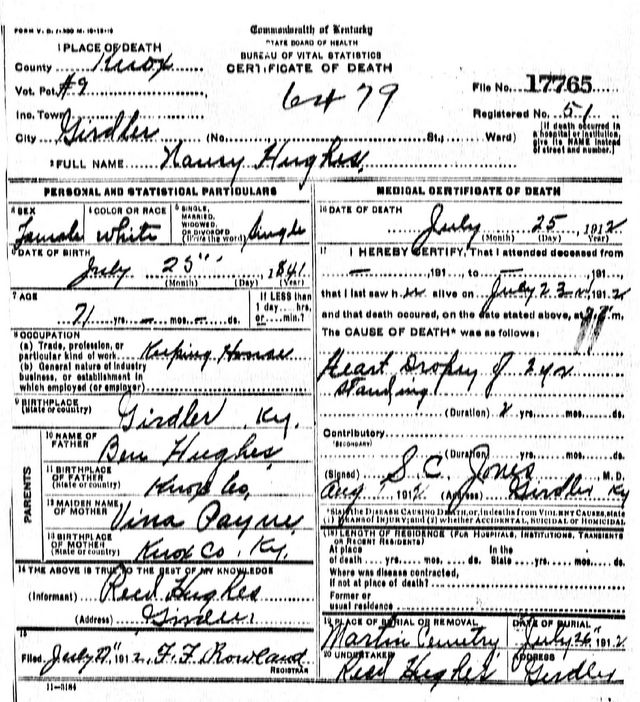 FORM V. S. 1-
Commonwealth of Kentucky
STATE BOARD OF HEALTH
BUREAU OF VITAL STATISTICS
CERTIFICATE OF DEATH
1 PLACE OF DEATH
County Knox
Vot. Pct. #9
Inc. Town
City Girdler (No. St.; Ward)
6479
File No. 17765
Registered No. 51
(If death occurred in a hospital or institution, give its NAME instead of street and number.)
2 FULL NAME Nancy Hughes,
PERSONAL AND STATISTICAL PARTICULARS
3 SEX Female
4 COLOR OR RACE white
5 SINGLE, MARRIED, WIDOWED, OR DIVORCED (Write the word) Single
6 DATE OF BIRTH July 25" 1841
(Month) (Day) (Year)
7 AGE 71 yrs. — mos. — ds.
If LESS than 1 day....hrs. or....min.?
8 OCCUPATION
(a) Trade, profession, or particular kind of work Keeping House
(b) General nature of industry business, or establishment in which employed (or employer)
9 BIRTHPLACE (State or country) Girdler Ky.
PARENTS
10 NAME OF FATHER Ben Hughes
11 BIRTHPLACE OF FATHER (State or country) Knox Co,
12 MAIDEN NAME OF MOTHER Vina Payne
13 BIRTHPLACE OF MOTHER (State or country) Knox Co. Ky.
14 THE ABOVE IS TRUE TO THE BEST OF MY KNOWLEDGE
(Informant) Reed Hughes
(Address) Girdler
15
Filed July 1912 F. F. Rowland
REGISTRAR
11-3184
MEDICAL CERTIFICATE OF DEATH
16 DATE OF DEATH July 25 1912
(Month) (Day) Year
17 I HEREBY CERTIFY, That I attended deceased from
— 191 to — 191
that I last saw h er alive on July 23rd 1912
and that death occured, on the date stated above, at m.
The CAUSE OF DEATH* was as follows:
Heart Dropsy of 2 yrs
standing
(Duration) 2 yrs. mos. ds.
Contributory
SECONDARY
(Duration) yrs. mos. ds.
(Signed) S. C. Jones M. D.
Aug 1912 (Address) Girdler Ky
*State the DISEASE CAUSING DEATH, or, in deaths from VIOLENT CAUSES, state (1) MEANS OF INJURY; and (2) whether ACCIDENTAL, SUICIDAL or HOMICIDAL
18 LENGTH OF RESIDENCE (FOR HOSPITALS, INSTITUTIONS, TRANSIENTS OR RECENT RESIDENTS)
At place of death yrs. mos. ds. In the State yrs. mos. ds.
Where was disease contracted, If not at place of death?
Former or usual residence
19 PLACE OF BURIAL OR REMOVAL Martin Cemetry
DATE OF BURIAL July 26" 1912
20 UNDERTAKER Reed Hughes
ADDRESS Girdler